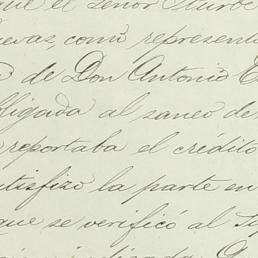 que el Señor Iturbe
uevas, como represent
de Don Antonio E
bligada al saneo de
reportaba el crédito
atisfizo la parte en
que se verificó al